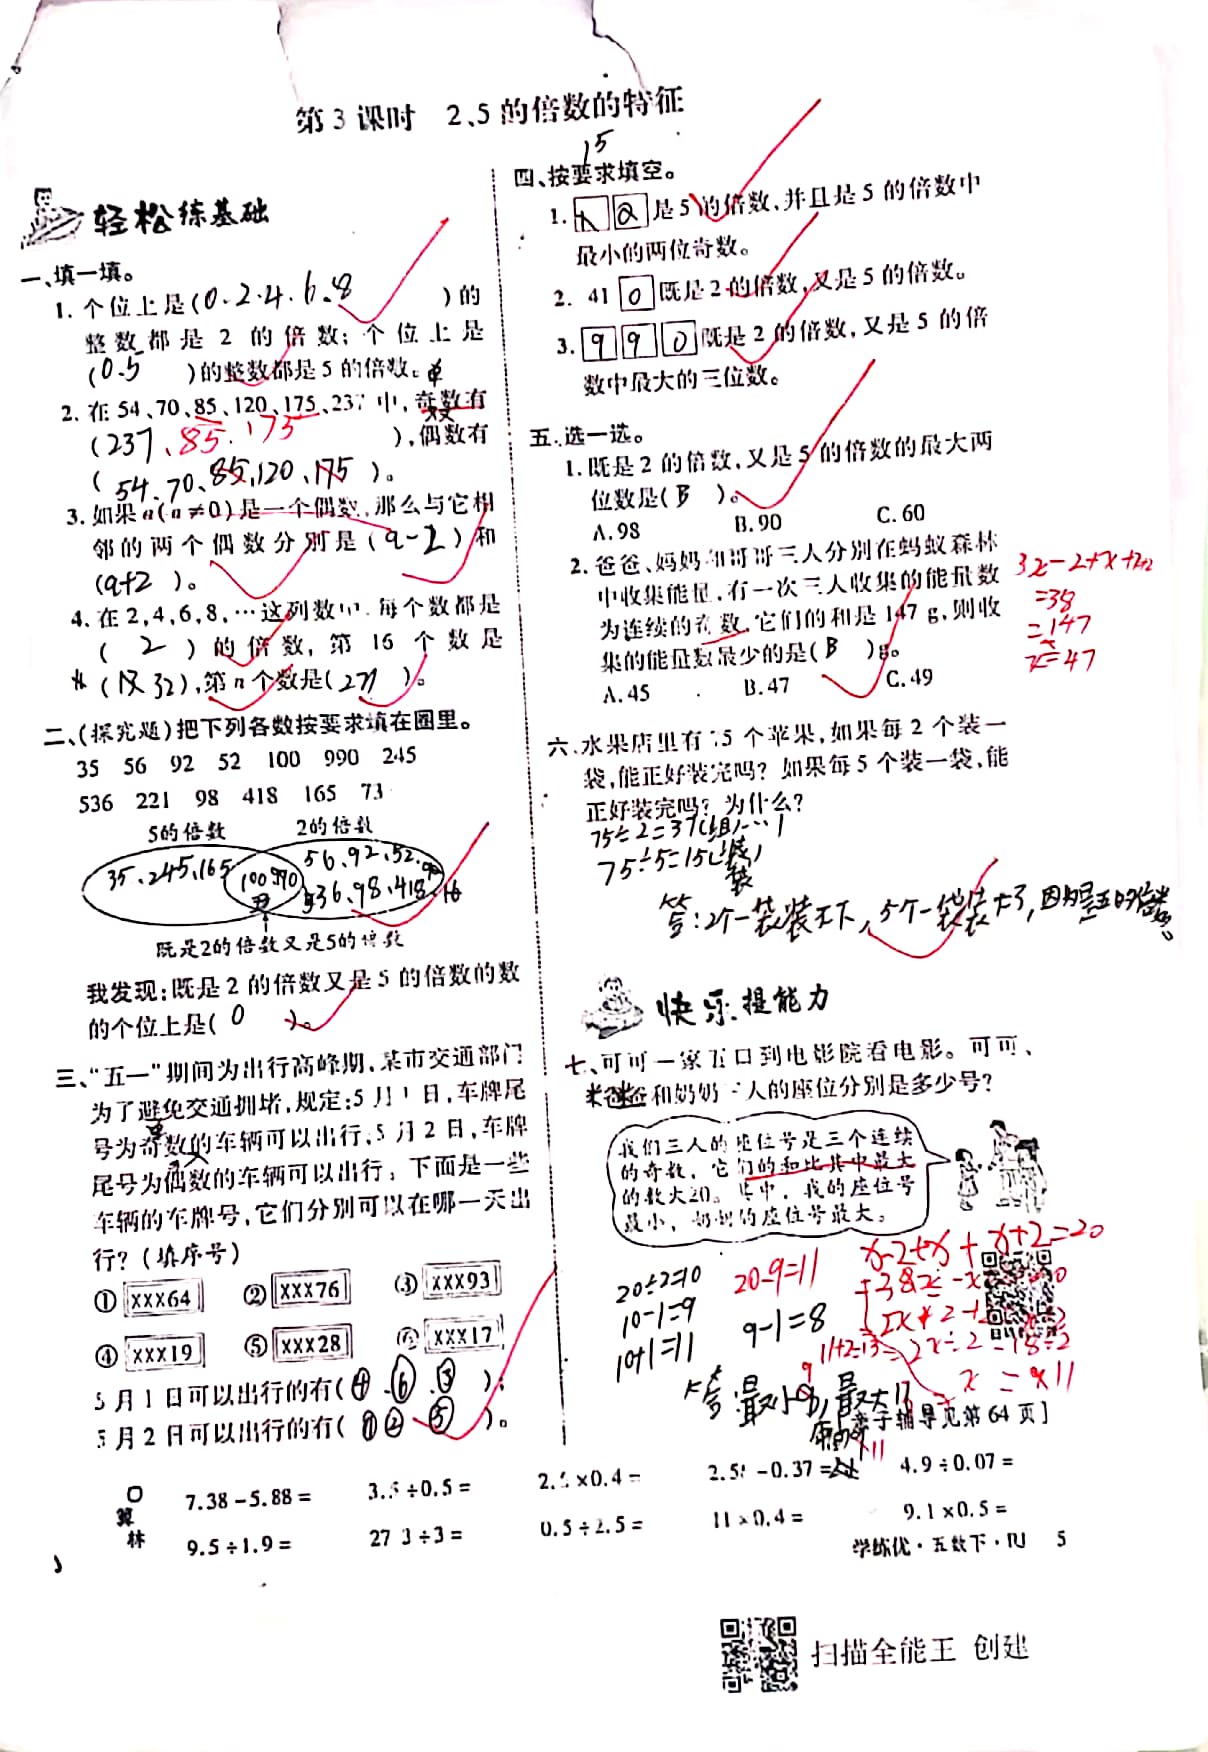 第3课时 2、5的倍数的特征
轻松练基础
一、填一填。
1. 个位上是(0.2.4.6.8)的
整数都是2的倍数;个位上是
(0.5)的整数都是5的倍数。
2. 在54、70、85、120、175、237中,奇数有
(237、85、175),偶数有
(54、70、85、120、175)。
3. 如果a(a≠0)是一个偶数,那么与它相
邻的两个偶数分别是(a-2)和
(a+2)。
4. 在2,4,6,8,…这列数中,每个数都是
(2)的倍数,第16个数是
(32),第n个数是(2n)。
二、(探究题)把下列各数按要求填在圈里。
35 56 92 52 100 990 245
536 221 98 418 165 73
5的倍数 2的倍数
35.245.165
100 990
56.92.52.
536.98.418
既是2的倍数又是5的倍数
我发现:既是2的倍数又是5的倍数的数
的个位上是(0)。
三、“五一”期间为出行高峰期,某市交通部门
为了避免交通拥堵,规定:5月1日,车牌尾
号为奇数的车辆可以出行,5月2日,车牌
尾号为偶数的车辆可以出行。下面是一些
车辆的车牌号,它们分别可以在哪一天出
行?(填序号)
① XXX64 ② XXX76 ③ XXX93
④ XXX19 ⑤ XXX28 ⑥ XXX17
5月1日可以出行的有(④.⑥.③);
5月2日可以出行的有(①②⑤)。
四、按要求填空。
15
1. 是5的倍数,并且是5的倍数中
最小的两位奇数。
2. 41 0 既是2的倍数,又是5的倍数。
3. 9 9 0 既是2的倍数,又是5的倍
数中最大的三位数。
五、选一选。
1. 既是2的倍数,又是5的倍数的最大两
位数是(B)。
A.98 B.90 C.60
2. 爸爸、妈妈和哥哥三人分别在蚂蚁森林
中收集能量,有一次三人收集的能量数
为连续的奇数,它们的和是147 g,则收
集的能量数最少的是(B)g。
A.45 B.47 C.49
3x-2+x+x+2
=38
=147
x=47
六、水果店里有75个苹果,如果每2个装一
袋,能正好装完吗?如果每5个装一袋,能
正好装完吗?为什么?
75÷2=37(组)…1
75÷5=15(袋)
答:2个一装装不下,5个一袋装大了,因为是五的倍数。
快乐提能力
七、可可一家五口到电影院看电影。可可、
爸爸和奶奶三人的座位分别是多少号?
我们三人的座位号是三个连续
的奇数,它们的和比其中最大
的数大20。其中,我的座位号
最小,奶奶的座位号最大。
20÷2=10
10-1=9
10+1=11
20-9=11
9-1=8
x-2+x+x+2=20
11+2=13
答:最小9,最大13
[亲子辅导见第64页]
口算林
7.38-5.88= 3.5÷0.5= ×0.4= -0.37= 4.9÷0.07=
9.5÷1.9= 27.3÷3= 0.5÷2.5= 11×0.4= 9.1×0.5=
学练优·五数下·RJ 5
扫描全能王 创建